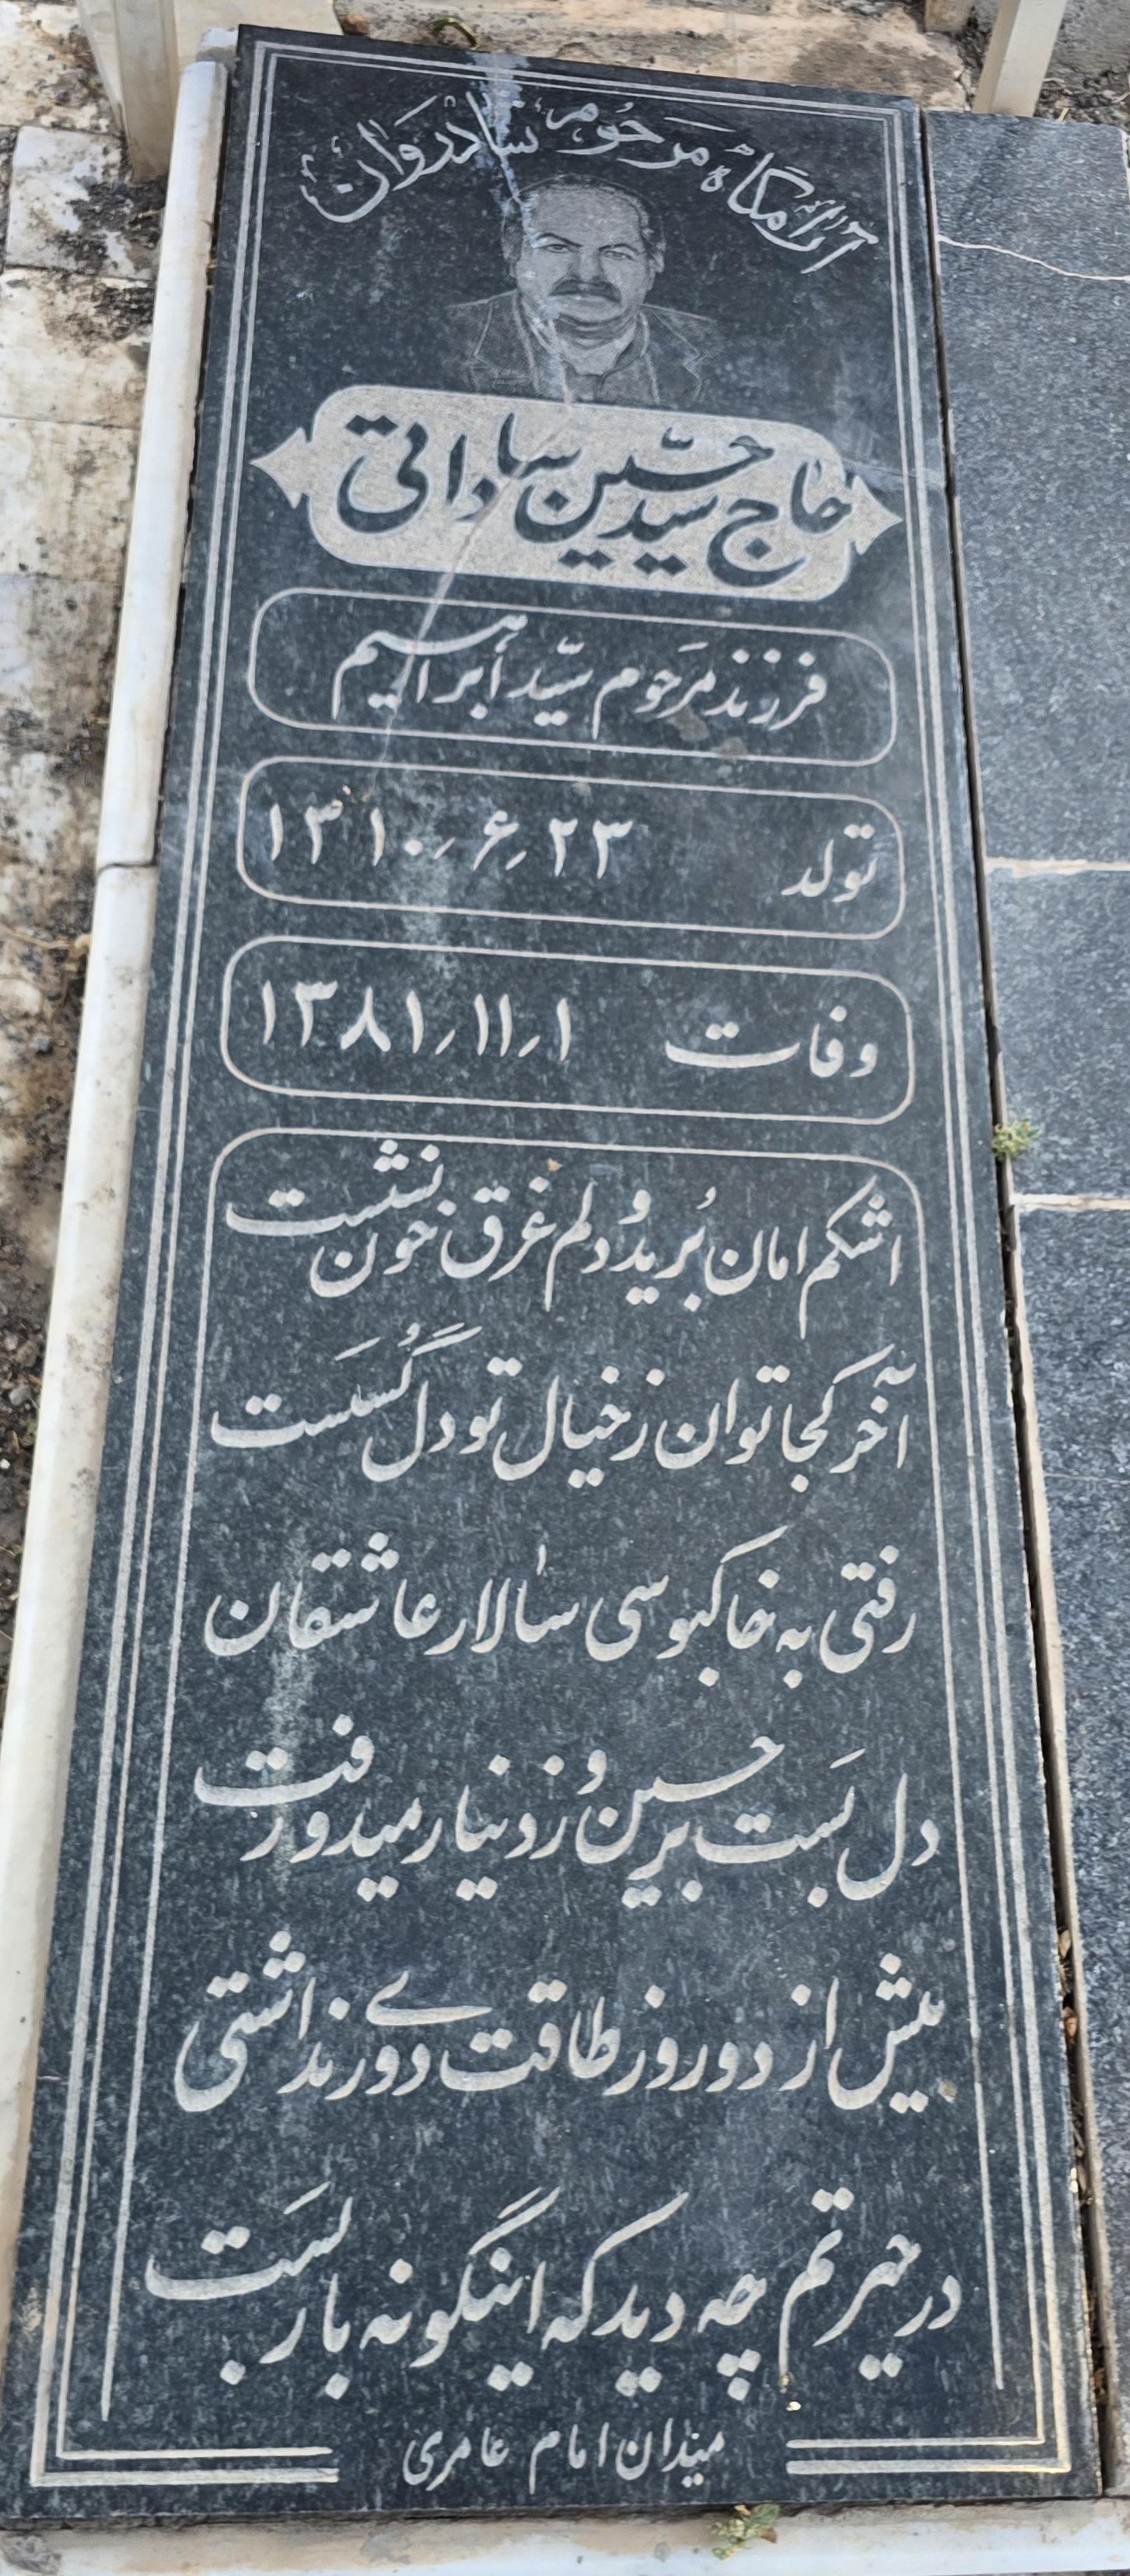 آرامگاه مرحوم شادروان
حاج سیدحسین ساداتی
فرزند مرحوم سیّد ابراهیم
تولد ۱۳۱۰/۶/۲۳
وفات ۱۳۸۱/۱۱/۱
اشکم امان بُرید و دلم غرق خون نشست
آخر کجا توان ز خیال تو دل گُسَست
رفتی به خاکبوسی سالار عاشقان
دل بَست بر حسین و ز دنیا رمید و رفت
بیش از دو روز طاقت دوری نداشتی
در حیرتم چه دید که اینگونه بار بَست
میدان امام عامری